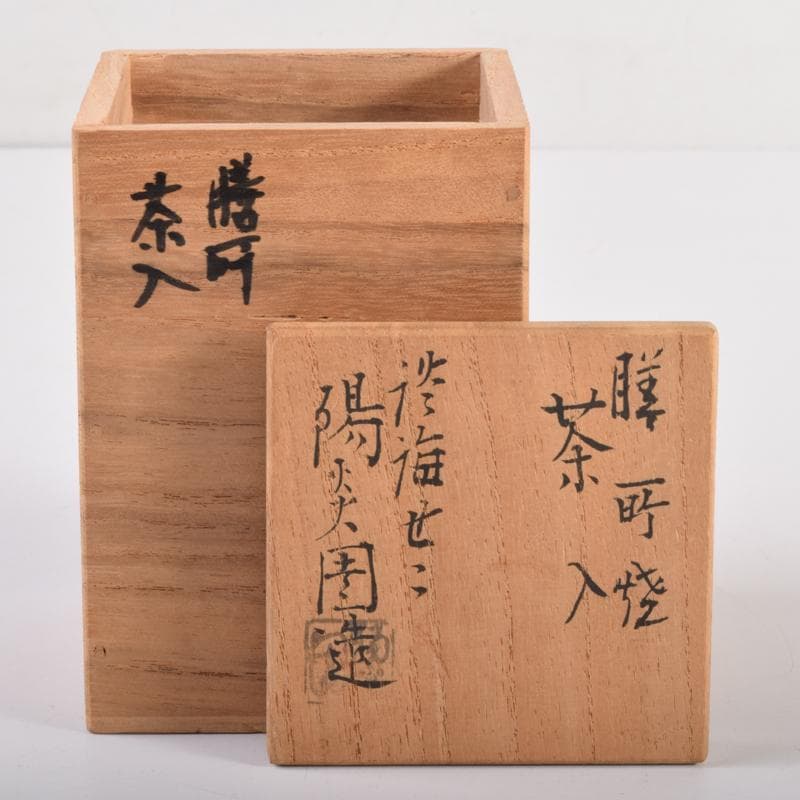 膳所
茶入
膳所焼
茶入
淡海せゝ
陽炎園造